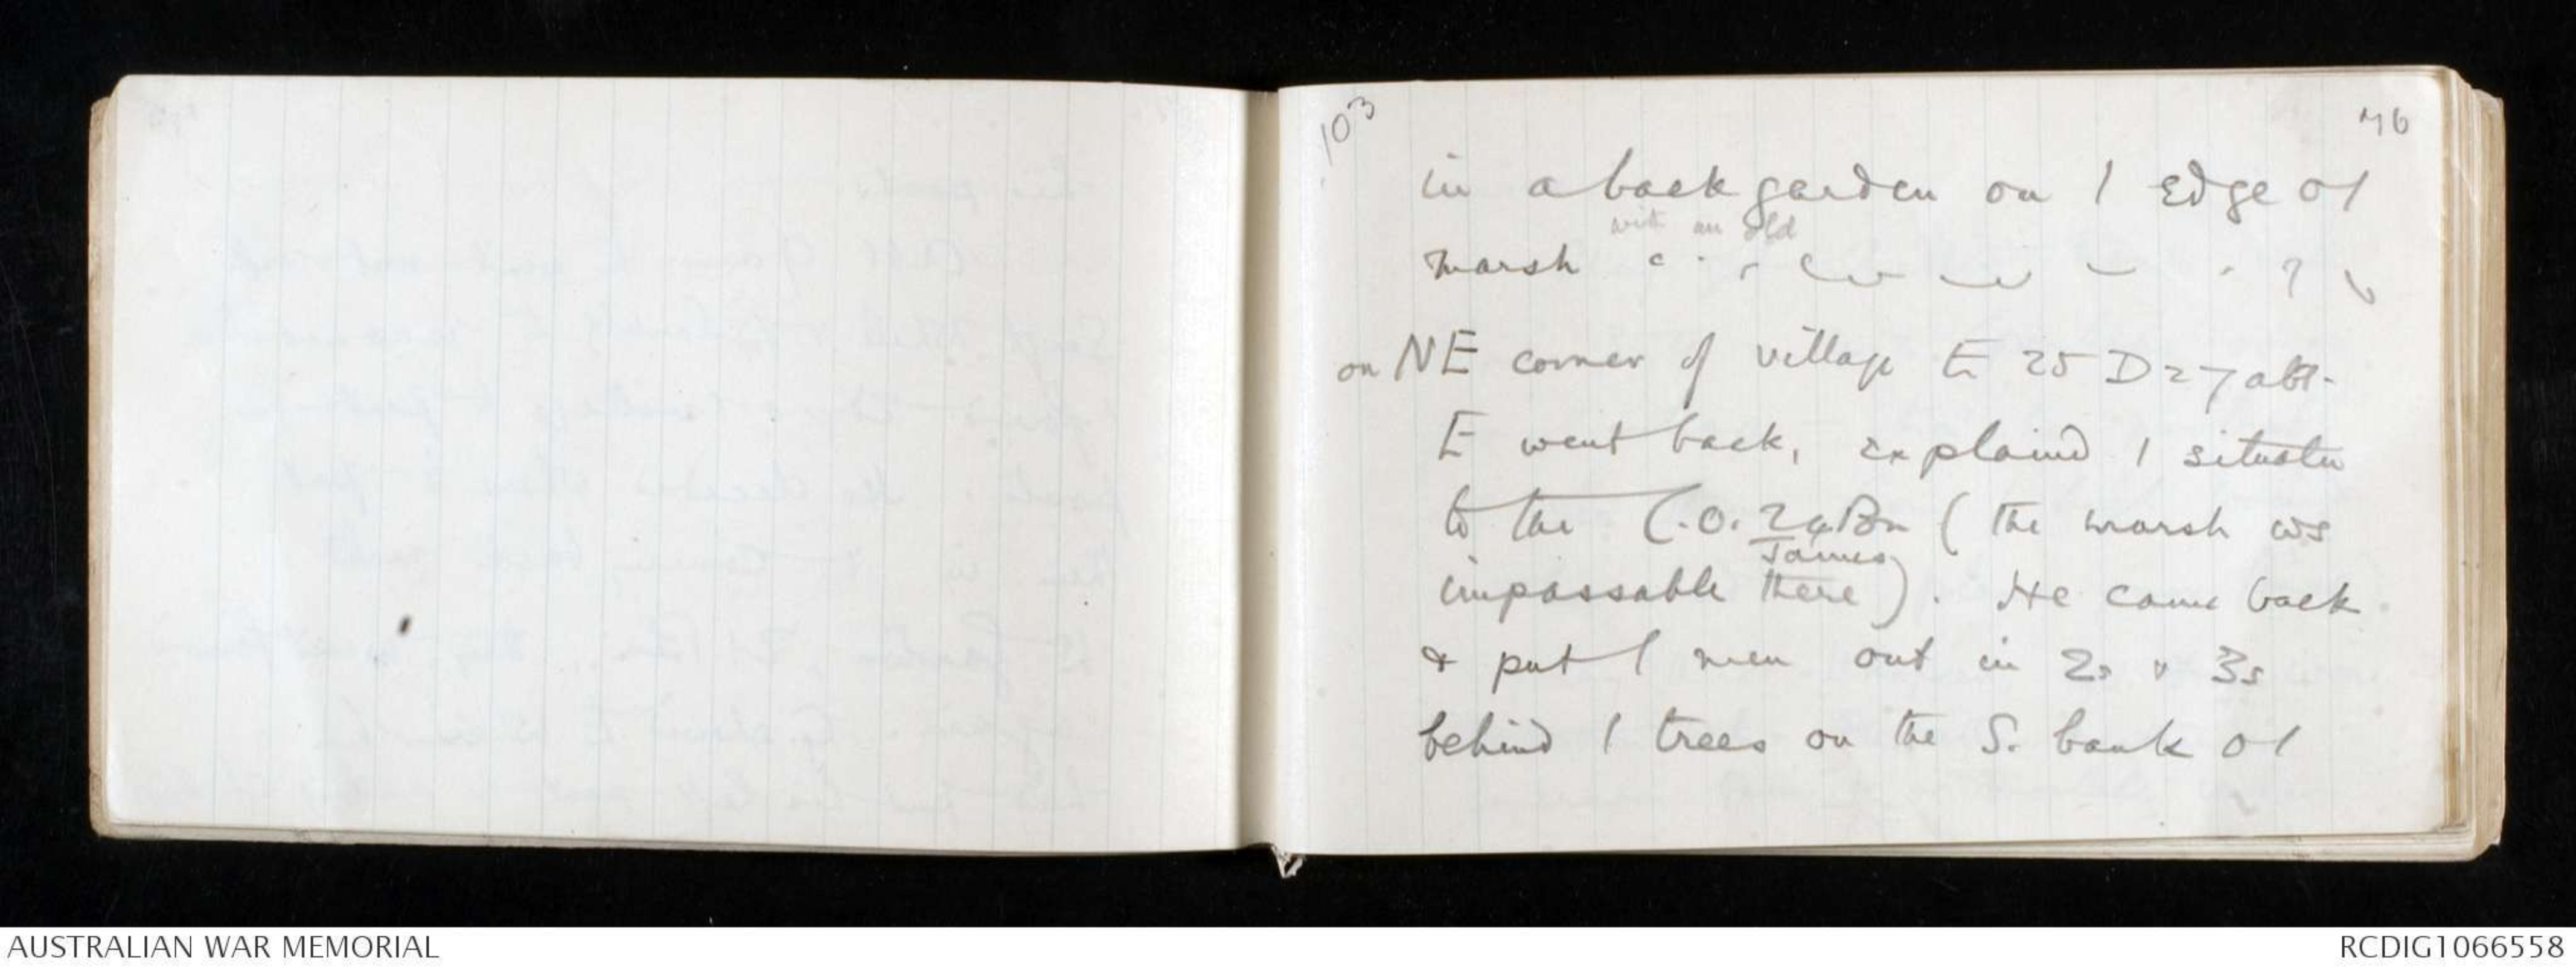 103
46
in a back garden on / edge of
with an old
marsh
on NE corner of village E 25 D 27 abt.
E went back, explaind / situatn
to the C.O. 24 Bn (the marsh ws
James
impassable there). He came back
& put / men out in 2s & 3s
behind / trees on the S. bank of
AUSTRALIAN WAR MEMORIAL
RCDIG1066558